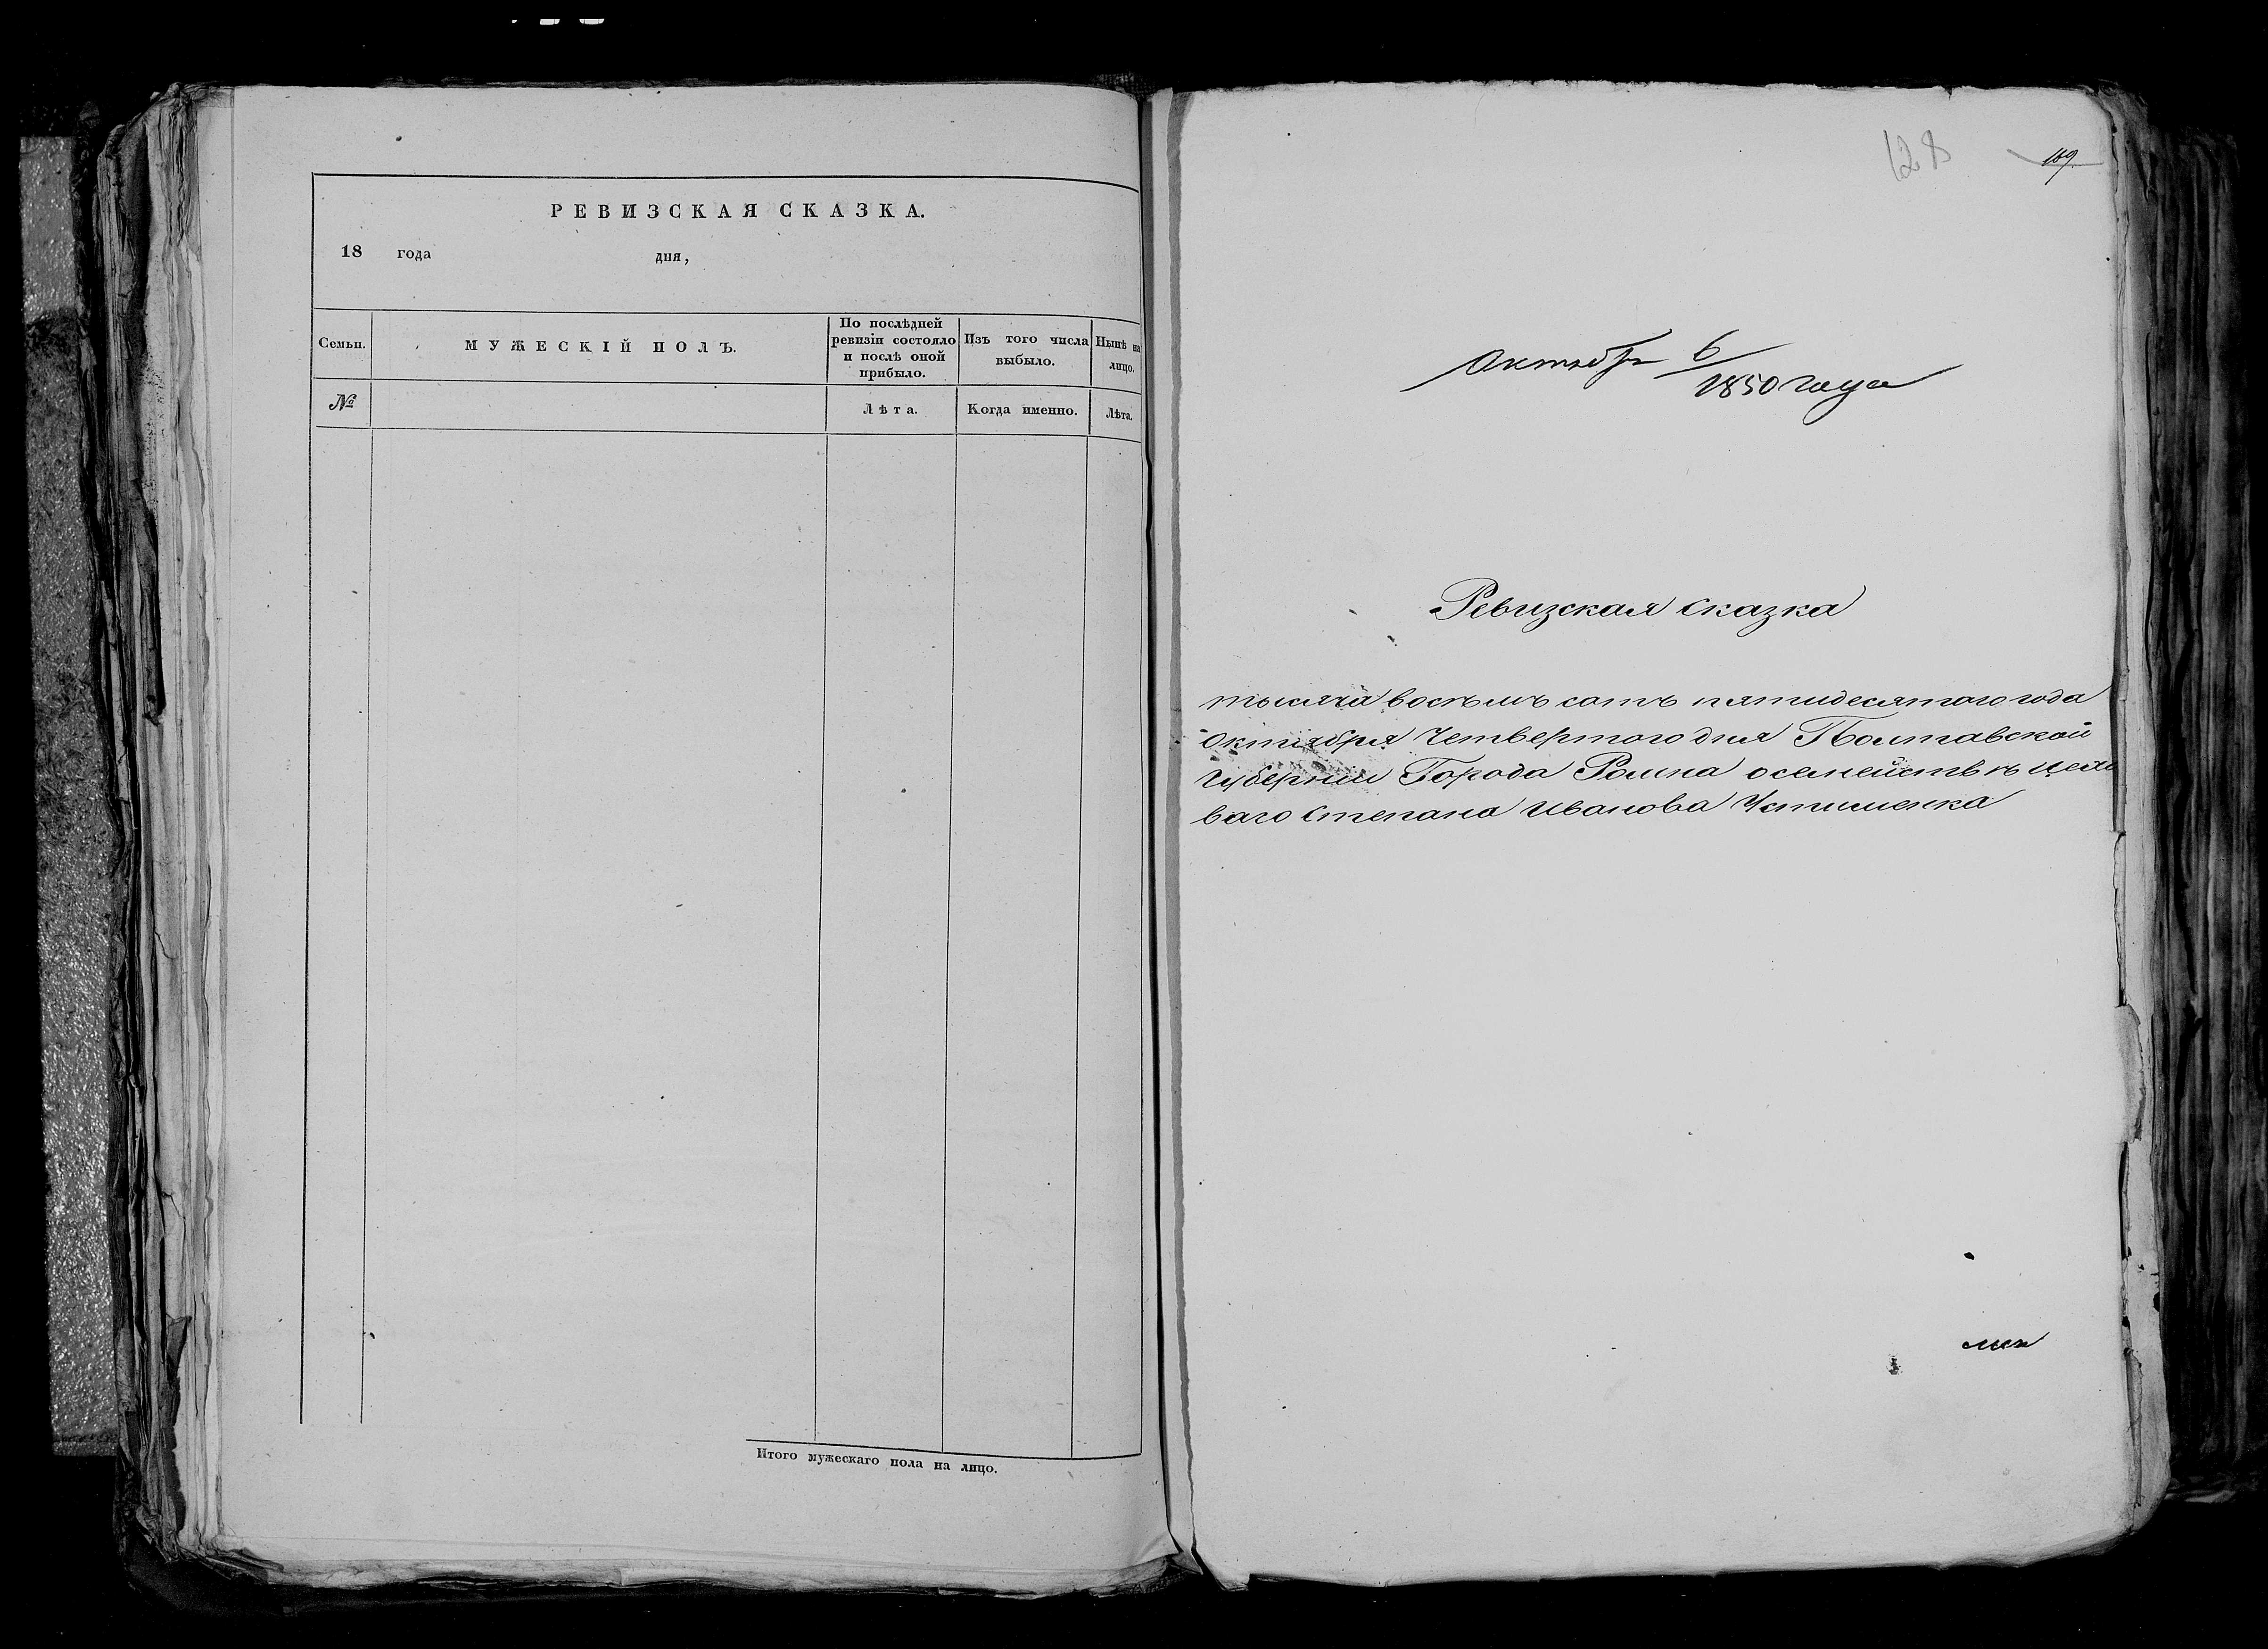 РЕВИЗСКАЯ СКАЗКА.
18 года дня,
Семьи.
МУЖЕСКІЙ ПОЛЪ.
По послѣдней
ревизіи состояло
и послѣ оной
прибыло.
Изъ того числа
выбыло.
Нынѣ на
лицо.
№
Лѣта.
Когда именно.
Лѣта.
Итого мужескаго пола на лицо.
128
169
Октября 6
1850 года
Ревизская сказка
тысяча восѣмъ сотъ пятидесятаго года
Октября Четвертого дня Полтавской
Губерніи Города Ромна о семействѣ цехо
ваго Степана Иванова Устименка